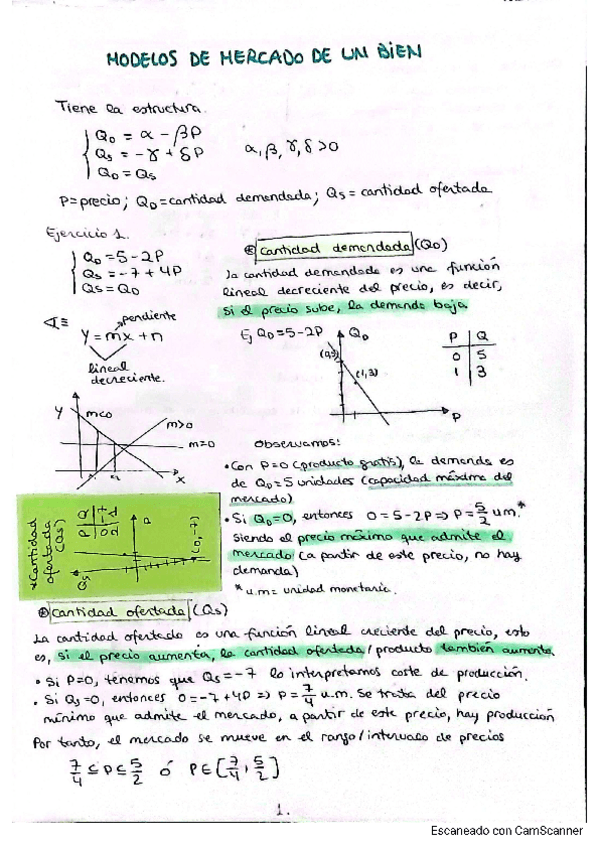 MODELOS DE MERCADO DE UN BIEN
Tiene la estructura.
QD = α - βP
QS = -γ + δP    α, β, γ, δ > 0
QD = QS
P = precio; QD = cantidad demandada; QS = cantidad ofertada
Ejercicio 1.
QD = 5 - 2P
QS = -7 + 4P
QS = QD
pendiente
Y = mx + n
lineal
decreciente.
Y m<0
m>0
m=0
x
⊛ Cantidad demandada (QD)
La cantidad demandada es una función
lineal decreciente del precio, es decir,
si el precio sube, la demanda baja
Ej QD = 5 - 2P
QD
(0,5)
(1,3)
P
P Q
0 5
1 3
Observamos:
• Con P=0 (producto gratis), la demanda es
de QD = 5 unidades (capacidad máxima del
mercado)
• Si QD=0, entonces 0 = 5 - 2P ⇒ P = 5/2 u.m.*
Siendo el precio máximo que admite el
mercado (a partir de este precio, no hay
demanda)
* u.m = unidad monetaria.
*Cantidad
ofertada
(QS)
P Q
0 -7
P
(0,-7)
QS
⊛ Cantidad ofertada (QS)
La cantidad ofertada es una función lineal creciente del precio, esto
es, si el precio aumenta, la cantidad ofertada/producto también aumenta.
• Si P=0, tenemos que QS = -7 lo interpretamos coste de producción.
• Si QS = 0, entonces 0 = -7 + 4P ⇒ P = 7/4 u.m. Se trata del precio
mínimo que admite el mercado, a partir de este precio, hay producción
Por tanto, el mercado se mueve en el rango/intervalo de precios
7/4 ≤ P ≤ 5/2 ó P ∈ [7/4, 5/2]
1.
Escaneado con CamScanner